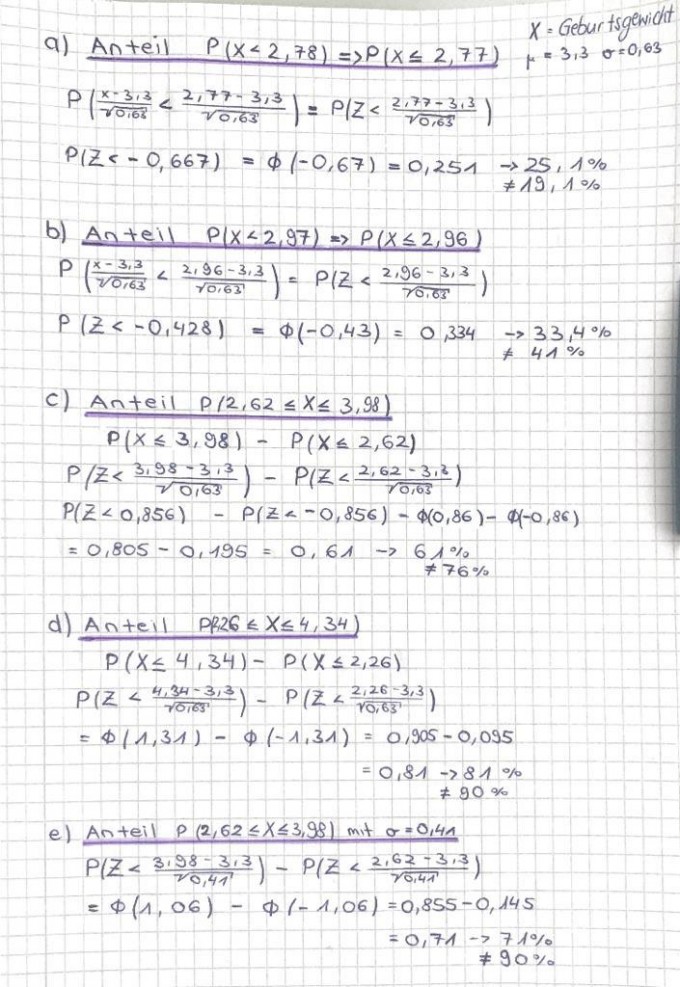 X = Geburtsgewicht
a) Anteil P(X < 2,78) => P(X ≤ 2,77)
μ = 3,3 σ = 0,63
P((x-3,3)/√0,63 < (2,77-3,3)/√0,63) = P(Z < (2,77-3,3)/√0,63)
P(Z < -0,667) = Φ(-0,67) = 0,251 → 25,1%
≠ 19,1%
b) Anteil P(X < 2,97) => P(X ≤ 2,96)
P((x-3,3)/√0,63 < (2,96-3,3)/√0,63) = P(Z < (2,96-3,3)/√0,63)
P(Z < -0,428) = Φ(-0,43) = 0,334 → 33,4%
≠ 41%
c) Anteil P(2,62 ≤ X ≤ 3,98)
P(X ≤ 3,98) - P(X ≤ 2,62)
P(Z < (3,98-3,3)/√0,63) - P(Z < (2,62-3,3)/√0,63)
P(Z < 0,856) - P(Z < -0,856) - Φ(0,86) - Φ(-0,86)
= 0,805 - 0,195 = 0,61 → 61%
≠ 76%
d) Anteil P(2,26 ≤ X ≤ 4,34)
P(X ≤ 4,34) - P(X ≤ 2,26)
P(Z < (4,34-3,3)/√0,63) - P(Z < (2,26-3,3)/√0,63)
= Φ(1,31) - Φ(-1,31) = 0,905 - 0,095
= 0,81 → 81%
≠ 90%
e) Anteil P(2,62 ≤ X ≤ 3,98) mit σ = 0,41
P(Z < (3,98-3,3)/√0,41) - P(Z < (2,62-3,3)/√0,41)
= Φ(1,06) - Φ(-1,06) = 0,855 - 0,145
= 0,71 → 71%
≠ 90%